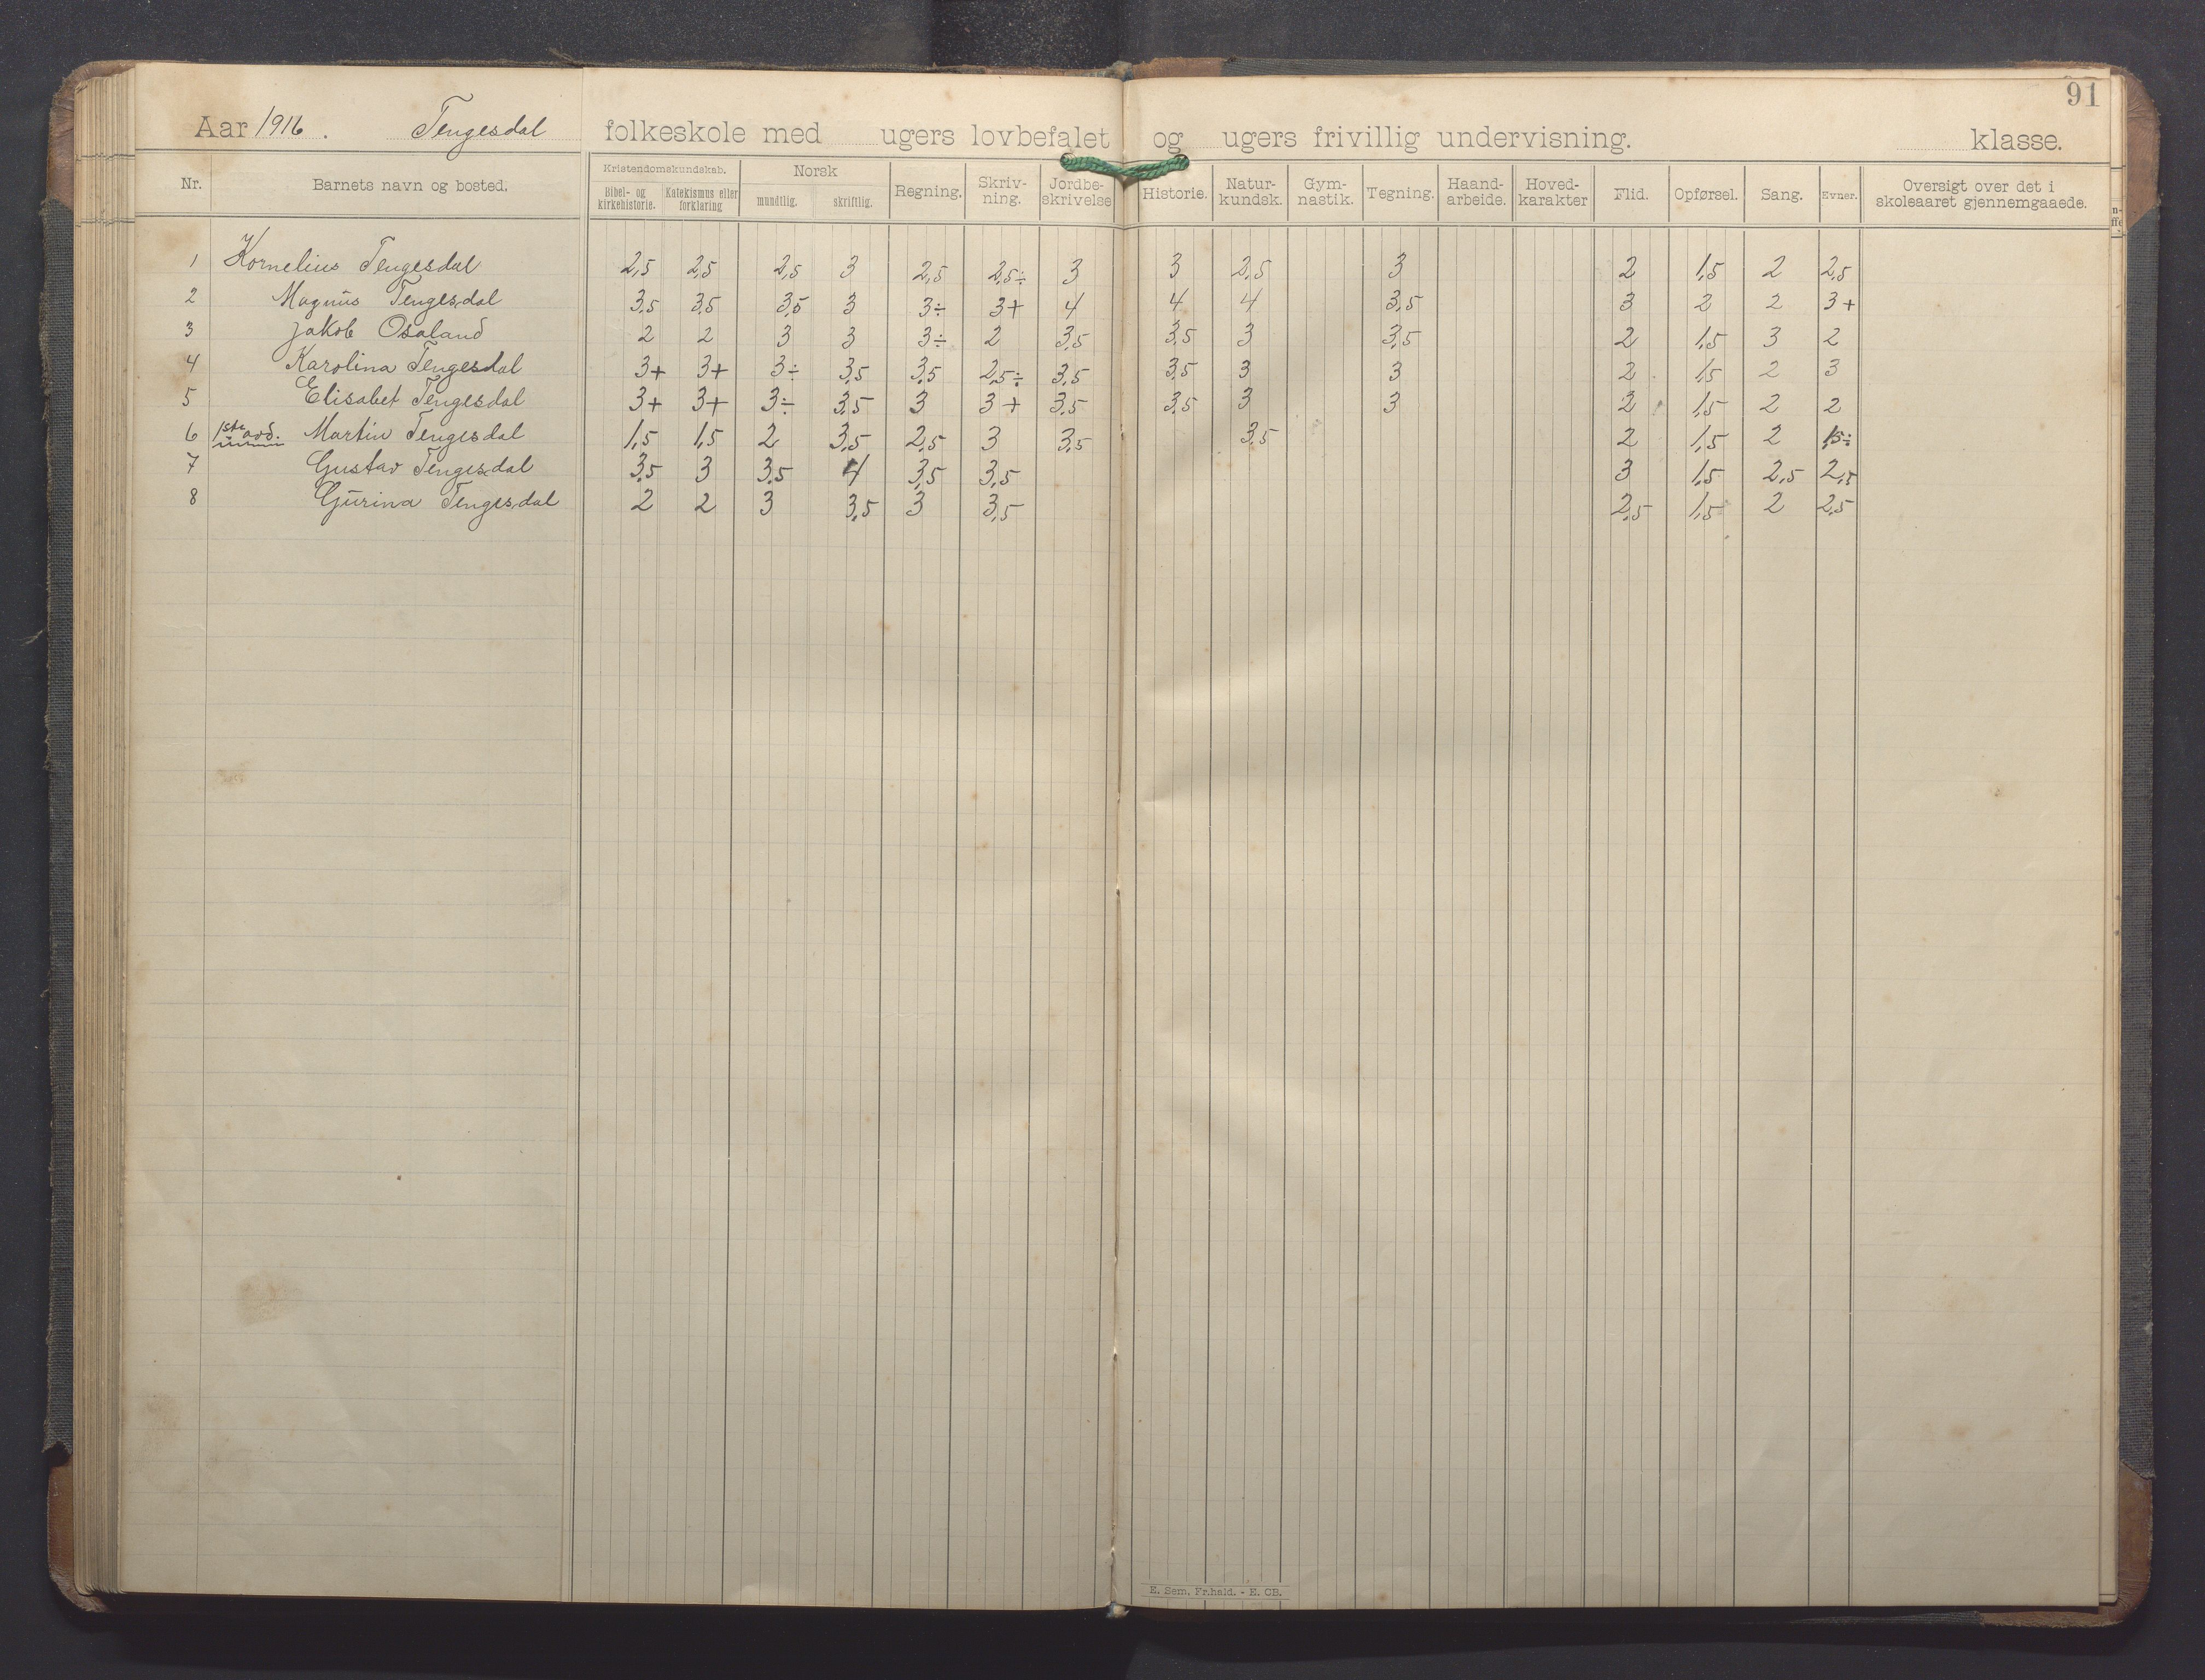 91
Aar 1916. Tengesdal folkeskole med ugers lovbefalet og ugers frivillig undervisning. klasse.
Nr. Barnets navn og bosted. Kristendomskundskab. Bibel- og kirkehistorie. Katekismus eller forklaring Norsk mundtlig. skriftlig. Regning. Skriv-ning. Jordbe-skrivelse Historie. Natur-kundsk. Gym-nastik. Tegning. Haand-arbeide. Hoved-karakter Flid. Opførsel. Sang. Evner. Oversigt over det i skoleaaret gjennemgaaede.
1 Kornelius Tengesdal 2,5 2,5 2,5 3 2,5 2,5÷ 3 3 2,5 3 2 1,5 2 2,5
2 Magnus Tengesdal 3,5 3,5 3,5 3 3÷ 3+ 4 4 4 3,5 3 2 2 3+
3 Jakob Osaland 2 2 3 3 3÷ 2 3,5 3,5 3 3,5 2 1,5 3 2
4 Karolina Tengesdal 3+ 3+ 3÷ 3,5 3,5 2,5÷ 3,5 3,5 3 3 2 1,5 2 3
5 Elisabet Tengesdal 3+ 3+ 3÷ 3,5 3 3+ 3,5 3,5 3 3 2 1,5 2 2
6 1ste avd. Martin Tengesdal 1,5 1,5 2 3,5 2,5 3 3,5 3,5 2 1,5 2 1,5÷
7 Gustav Tengesdal 3,5 3 3,5 4 3,5 3,5 3 1,5 2,5 2,5
8 Gurina Tengesdal 2 2 3 3,5 3 3,5 2,5 1,5 2 2,5
E. Sem, Fr.hald. - E. OB.